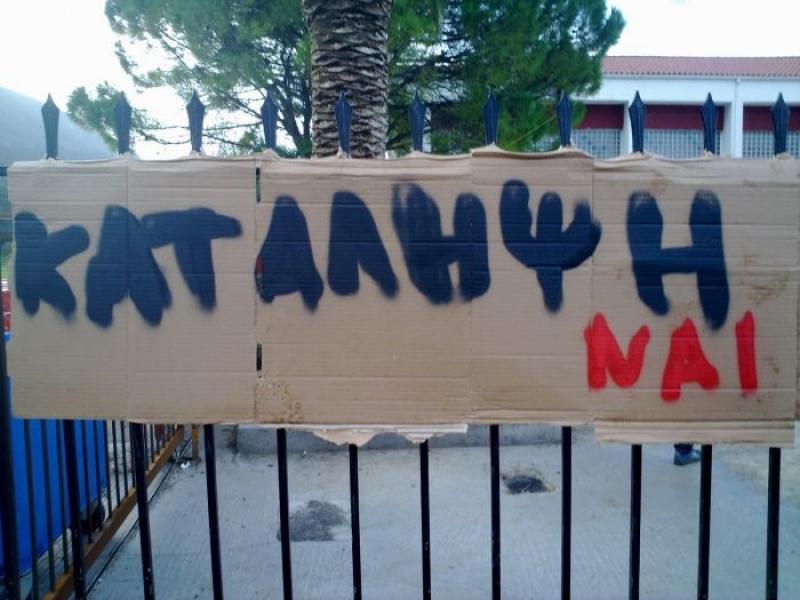 ΚΑΤΑΛΗΨΗ
ΝΑΙ